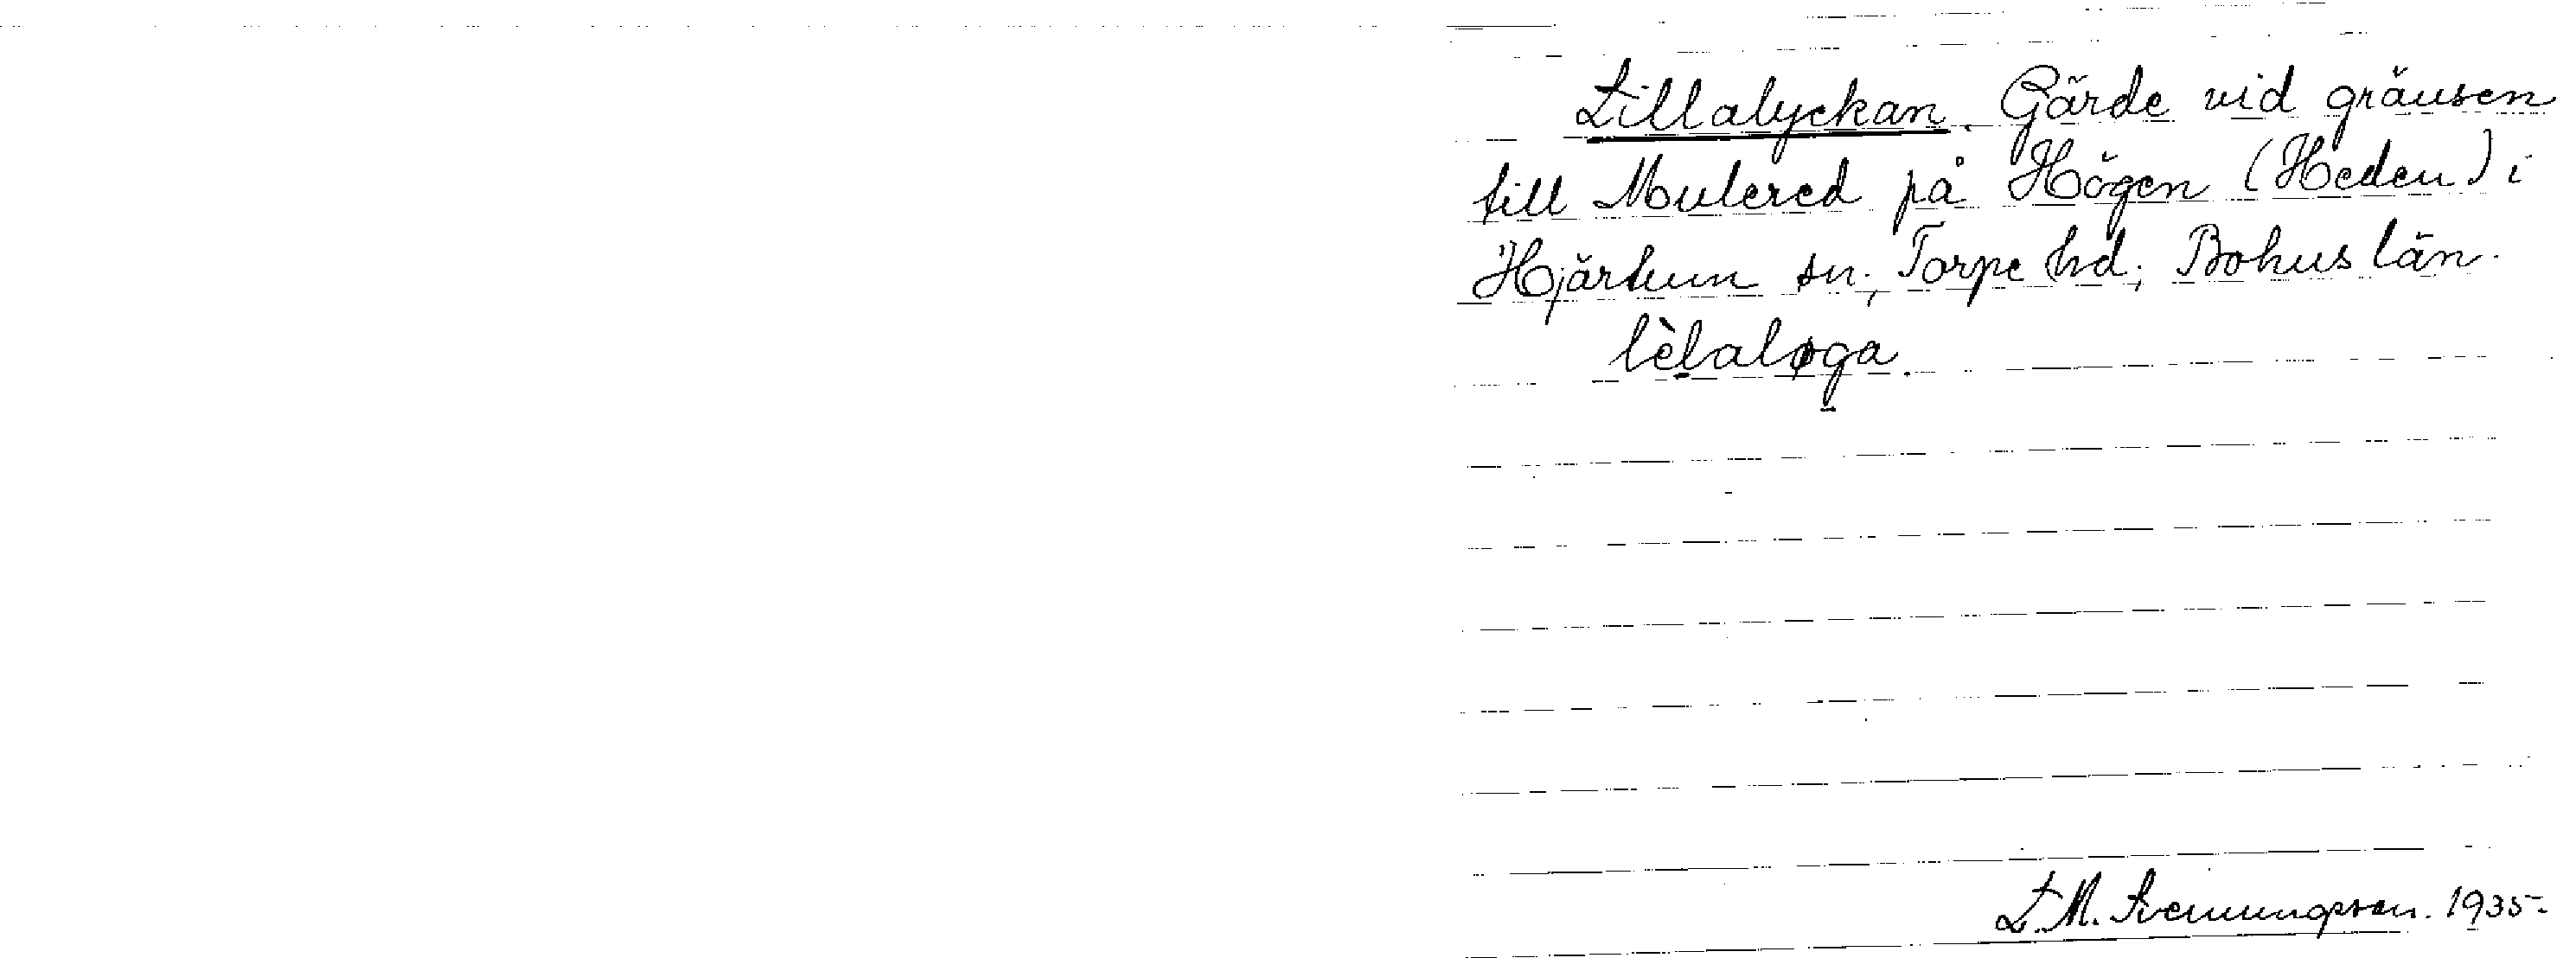 Lillalyckan. Gärde vid gränsen
till Mulered på Högen (Heden) i
Hjärtum sn; Torpe hd; Bohus län.
lèlaløga.
L.M. Svenungsson. 1935.